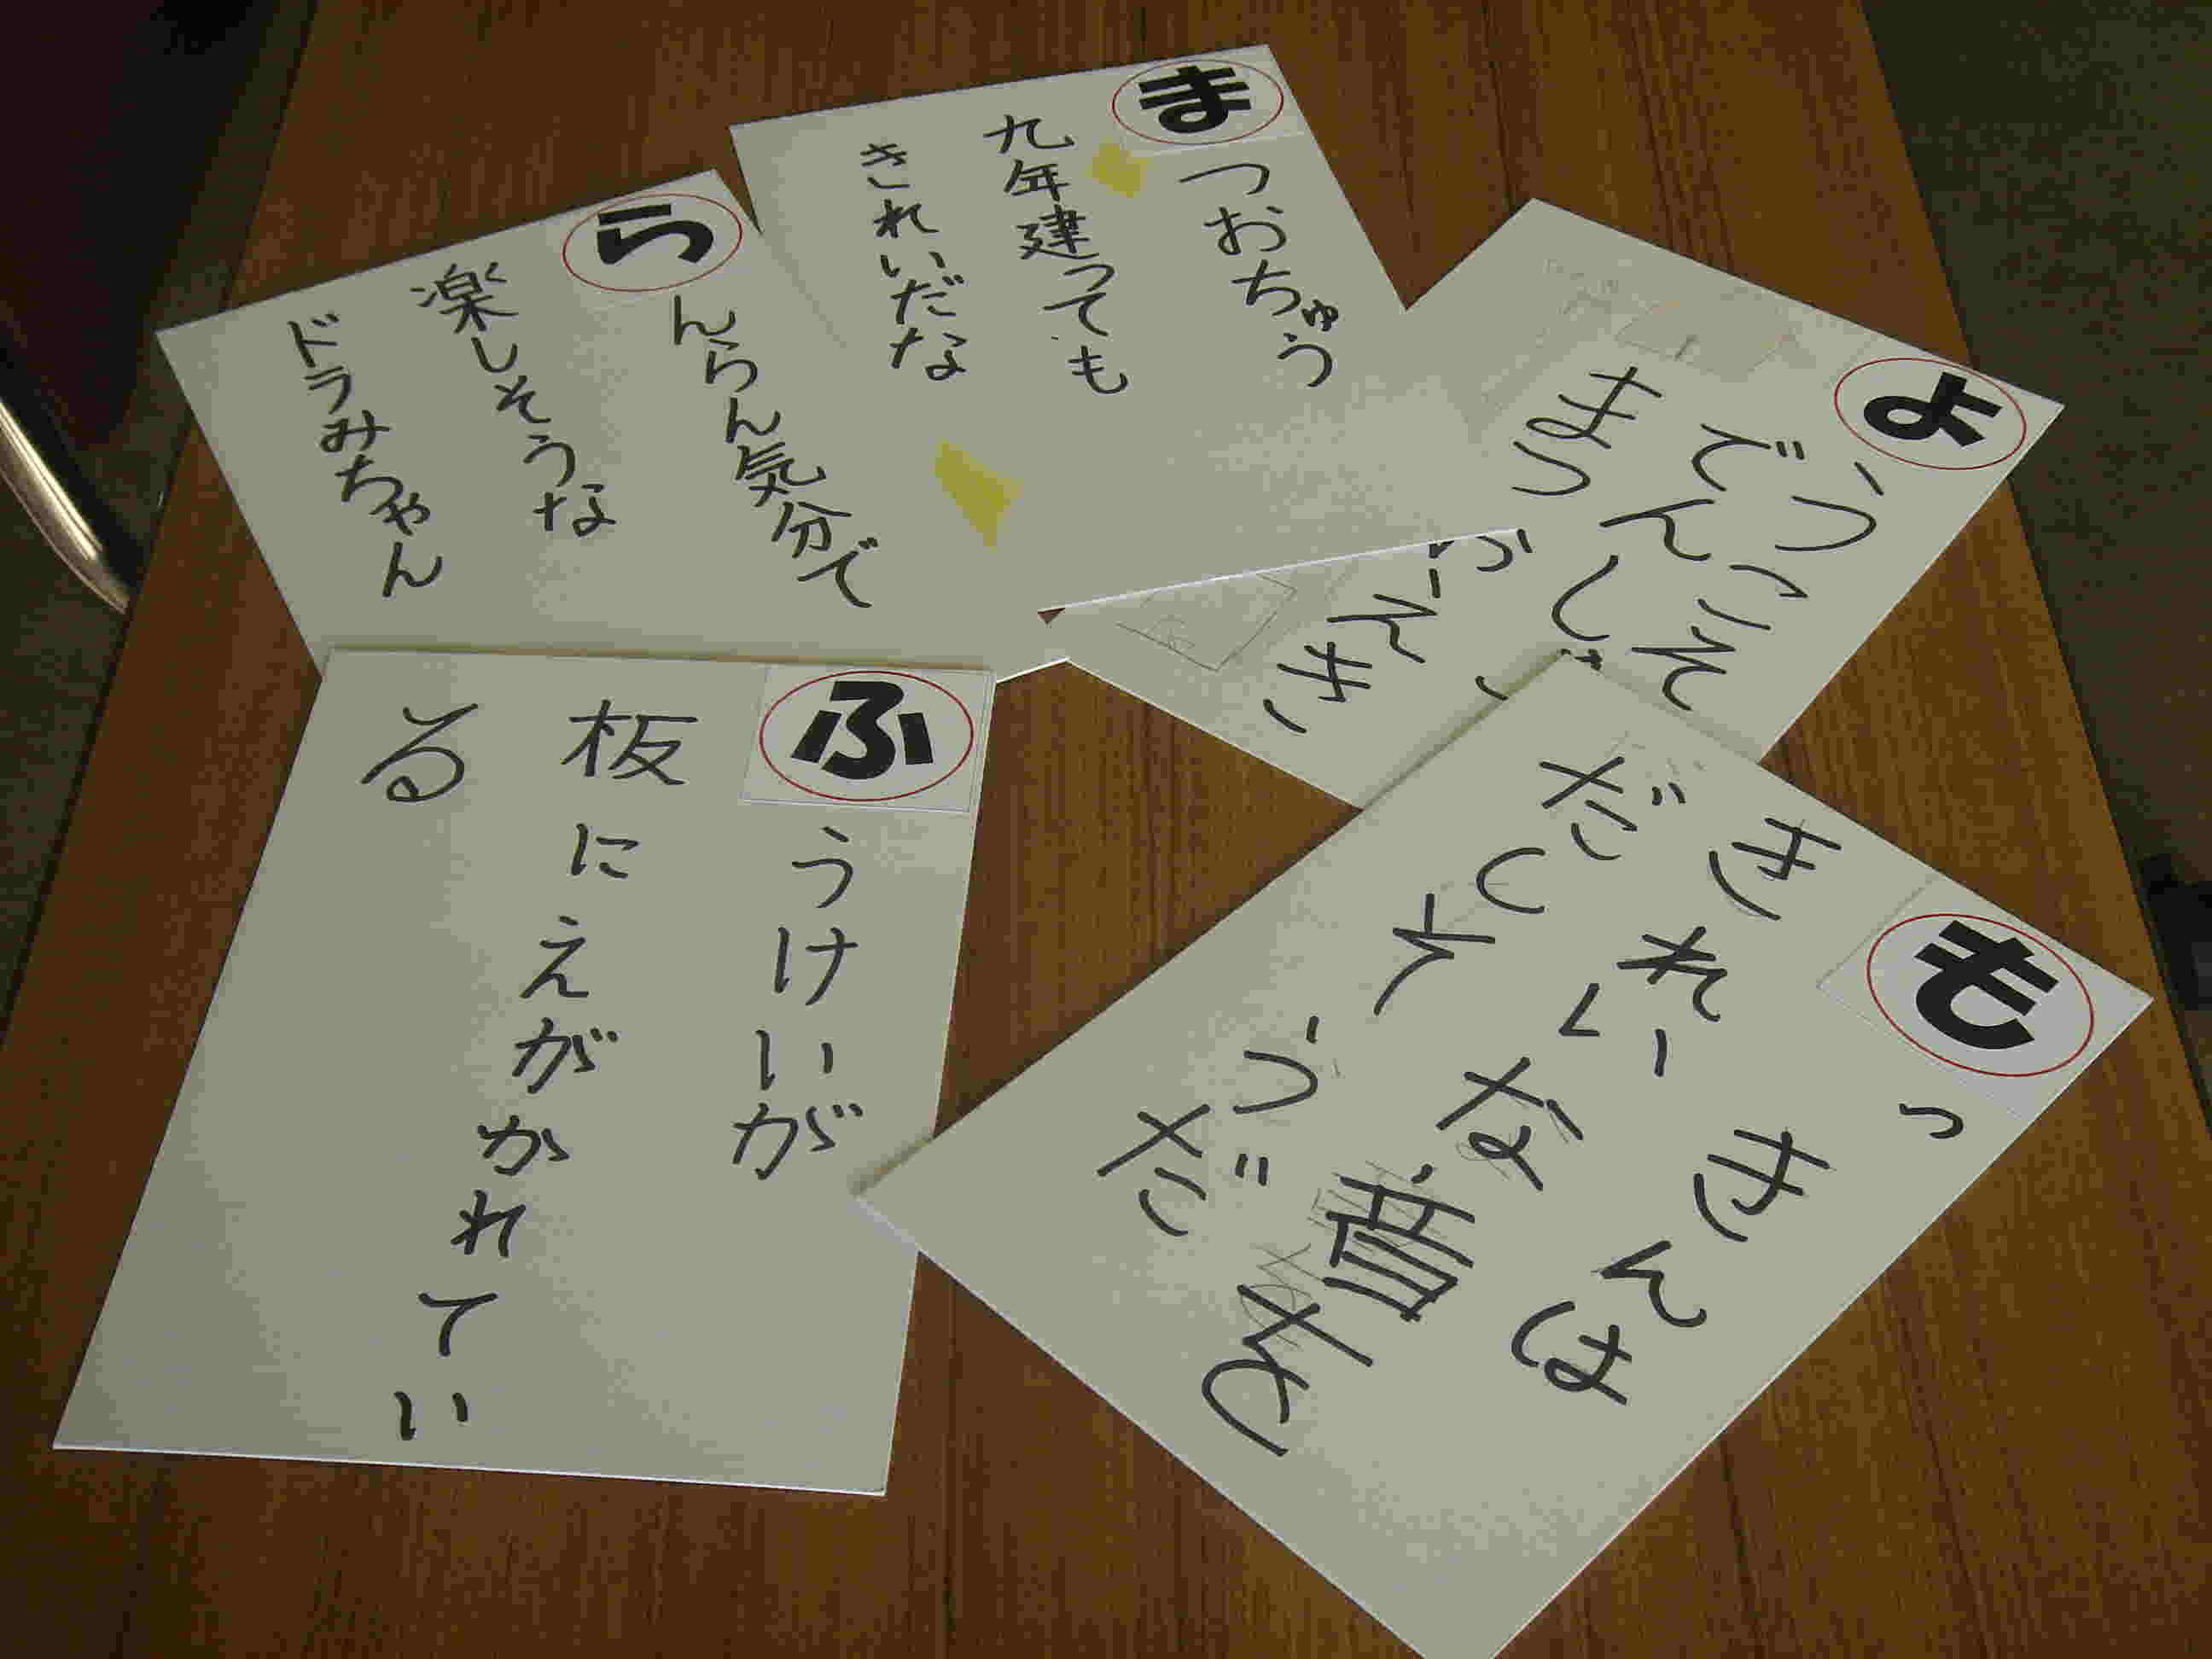 ま
つおちゅう
九年建っても
きれいだな
ら
んらん気分で
楽しそうな
ドラみちゃん
よ
うこそ
でんし
まつ
えき
ふ
うけいが
板にえがかれてい
る
も
っきんは
きれいな音を
だしそうだ